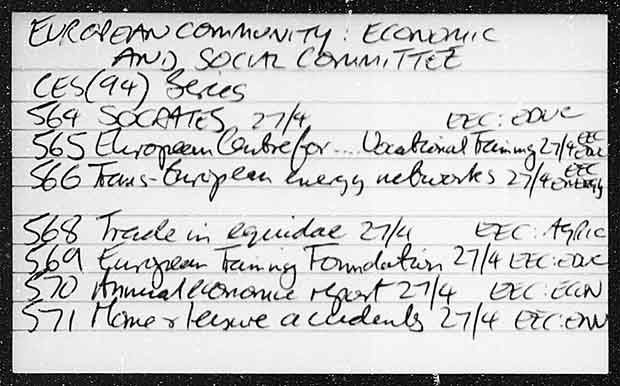 EUROPEAN COMMUNITY: ECONOMIC
AND SOCIAL COMMITTEE
CES(94) Series
564 SOCRATES 27/4 EEC: EDUC
565 European Centre for ... Vocational Training 27/4 EEC EDUC
566 Trans-European energy networks 27/4 EEC ENERGY
568 Trade in equidae 27/4 EEC: AGRIC
569 European Training Foundation 27/4 EEC: EDUC
570 Annual economic report 27/4 EEC: ECON
571 Home & leisure accidents 27/4 EEC: